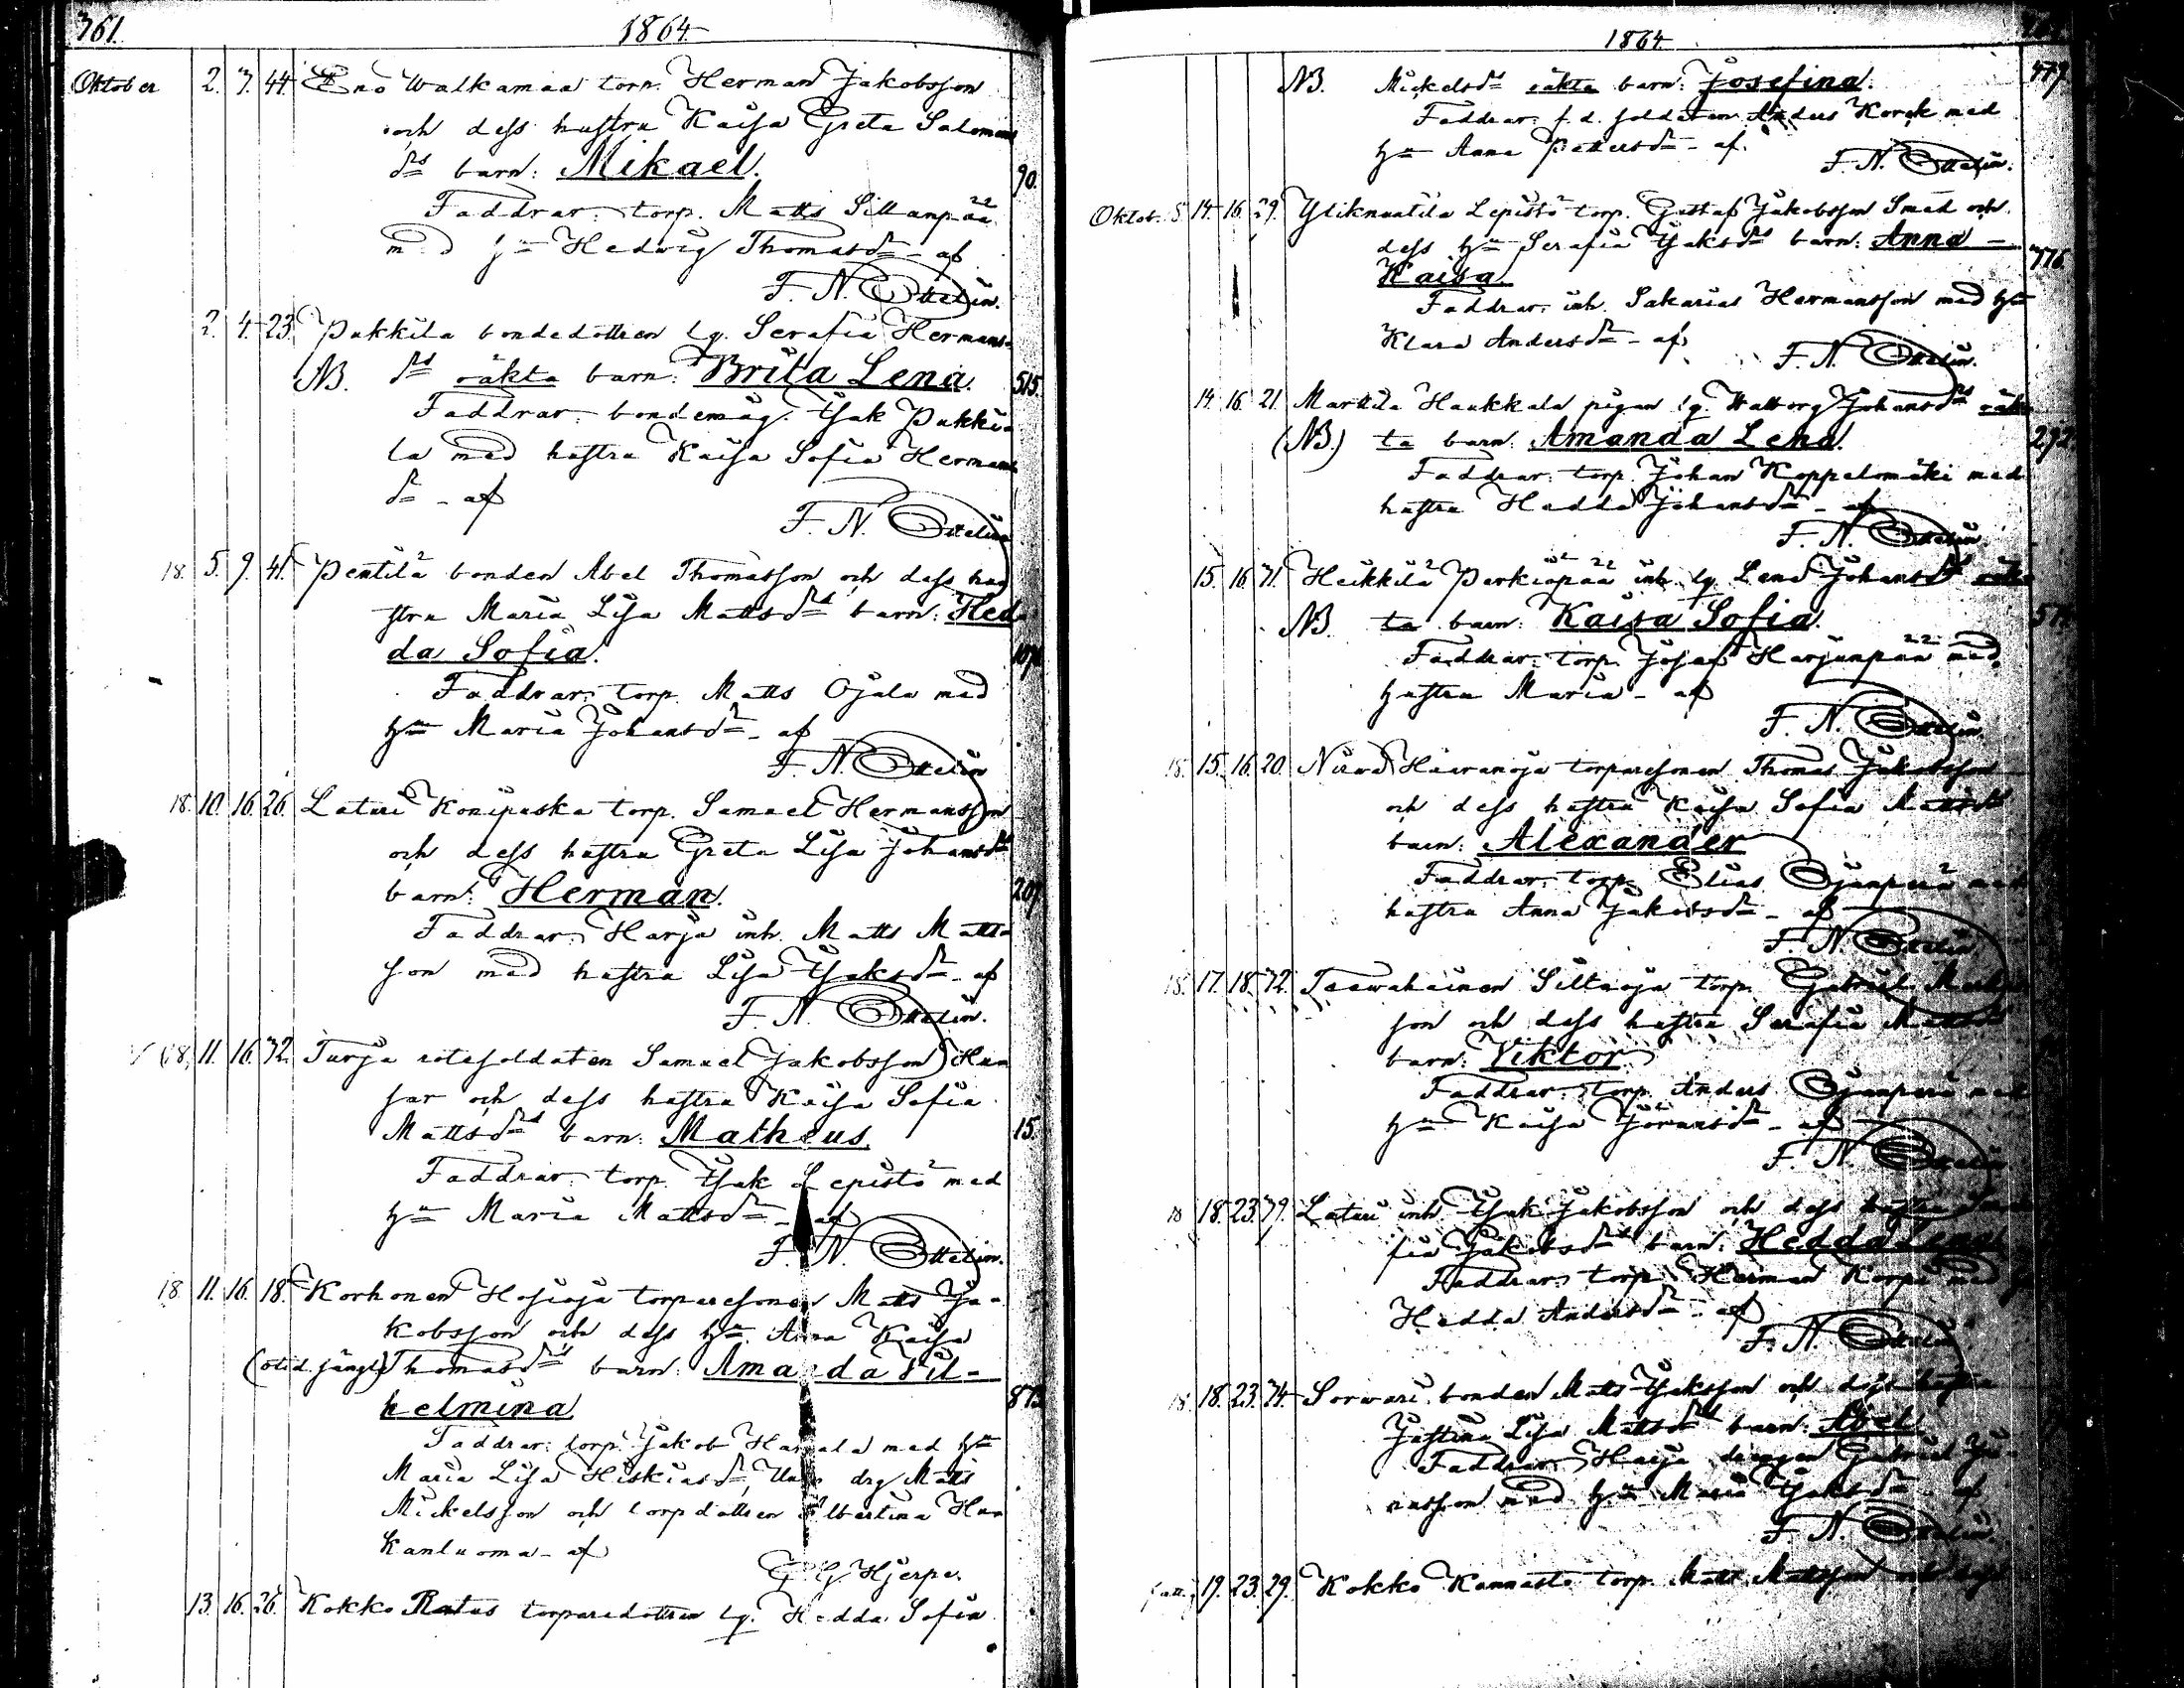 361.
1864.
Oktober 2. 7. 44. Eno Walkamaa torp. Herman Jakobsson
och dess hustru Kaisa Greta Salomons
ds barn: Mikael. 90.
Faddrar: torp. Matts Sillanpää
med hu Hedwig Thomasdr - af
F. N. Ottelin.
2. 4. 23. Pukkila bondedottren lg. Serafia Hermans-
NB. ds oäkta barn: Brita Lena. 515.
Faddrar: bondemåg. Isak Pukki-
la med hustru Kaisa Sofia Hermans
dr - af
F. N. Ottelin
18. 5. 9. 41. Pentilä bonden Abel Thomasson och dess hu-
stru Maria Lisa Mattsdrs barn: Hed-
da Sofia.
Faddrar: torp. Matts Ojala med
hu Maria Johansdr - af
F. N. Ottelin
18. 10. 16. 26. Laturi Konipuska torp. Samuel Hermansson
och dess hustru Greta Lisa Johansds
barn: Herman. 207.
Faddrar: Harja inh. Matts Matts-
son med hustru Lisa Isaksdr - af
F. N. Ottelin.
18. 11. 16. 32. Turja rotesoldaten Samuel Jakobsson Hu
sar och dess hustru Kaisa Sofia
Mattsdrs barn: Matheus. 15.
Faddrar: torp. Isak Lepistö med
hu Maria Mattsdr - af
F. N. Ottelin.
18. 11. 16. 18. Korhonen Hosioja torparesonen Matts Ja-
kobsson och dess hu Anna Kaisa
Thomasdrs barn: Amanda Vil-
helmina
Faddrar: torp. Jakob med hu
Maria Lisa Hiskiasdr, drg Matts
Mickelsson och torpdottren Albertina
kanluoma - af
G. G. Hjerpe.
13. 16. 26. Kokko Ratus torparedottren lg. Hedda Sofia
1864
NB. Mickelsds oäkta barn: Josefina. 479.
Faddrar: f. d. soldaten Anders Korck med
hu Anna Pettersdr - af
F. N. Ottelin.
Oktob. 14. 16. 29. Yliknuutila Lepistö torp. Gustaf Jakobsson Smed och
dess hu Serafia Isaksds barn: Anna - 776.
Kaisa
Faddrar: inh. Sakarias Hermansson med hu
Klara Andersdr - af
F. N. Ottelin.
14. 16. 21. Marttila Haukkala pigan lg. Walborg Johansds oäk-
(NB.) ta barn: Amanda Lena. 292.
Faddrar: torp. Johan Koppelomäki med
hustru Hedda Johansdr - af
F. N. Ottelin
15. 16. 31. Heikkilä Perkiöpää inh. lg. Lena Johansds oäk-
NB. ta barn: Kaisa Sofia.
Faddrar: torp. Josef Harjunpää med
hustru Maria - af
F. N. Ottelin.
18. 15. 16. 20. Nirwa Haaranoja torparesonen Thomas Jakobsson
och dess hustru Kaisa Sofia Mattsds
barn: Alexander
Faddrar: torp. Elias Ojanperä med
hustru Anna Jakobsdr - af
F. N. Ottelin
18. 17. 18. 32. Taawahainen Siltaoja torp. Gabriel
son och dess hustru Serafia
barn: Viktor
Faddrar: torp. Anders Ojanperä med
hu Kaisa Jöransdr - af
F. N. Ottelin
18. 18. 23. 39. Laturi inh. Isak Jakobsson och dess hustru
fia Jakobsdrs barn: Hedda
Faddrar: torp. Herman Korpi med
Hedda Andersdr - af
F. N. Ottelin
18. 18. 23. 34. Sorwari bonden Matts Isaksson och dess hustru
Justina Lisa Mattsdrs barn: Abel
Faddrar: Harja drengen Gabriel
ansson med hu Maria Isaksdr - af
F. N. Ottelin.
19. 23. 29. Kokko Kannasto torp. Matts Mattsson och dess